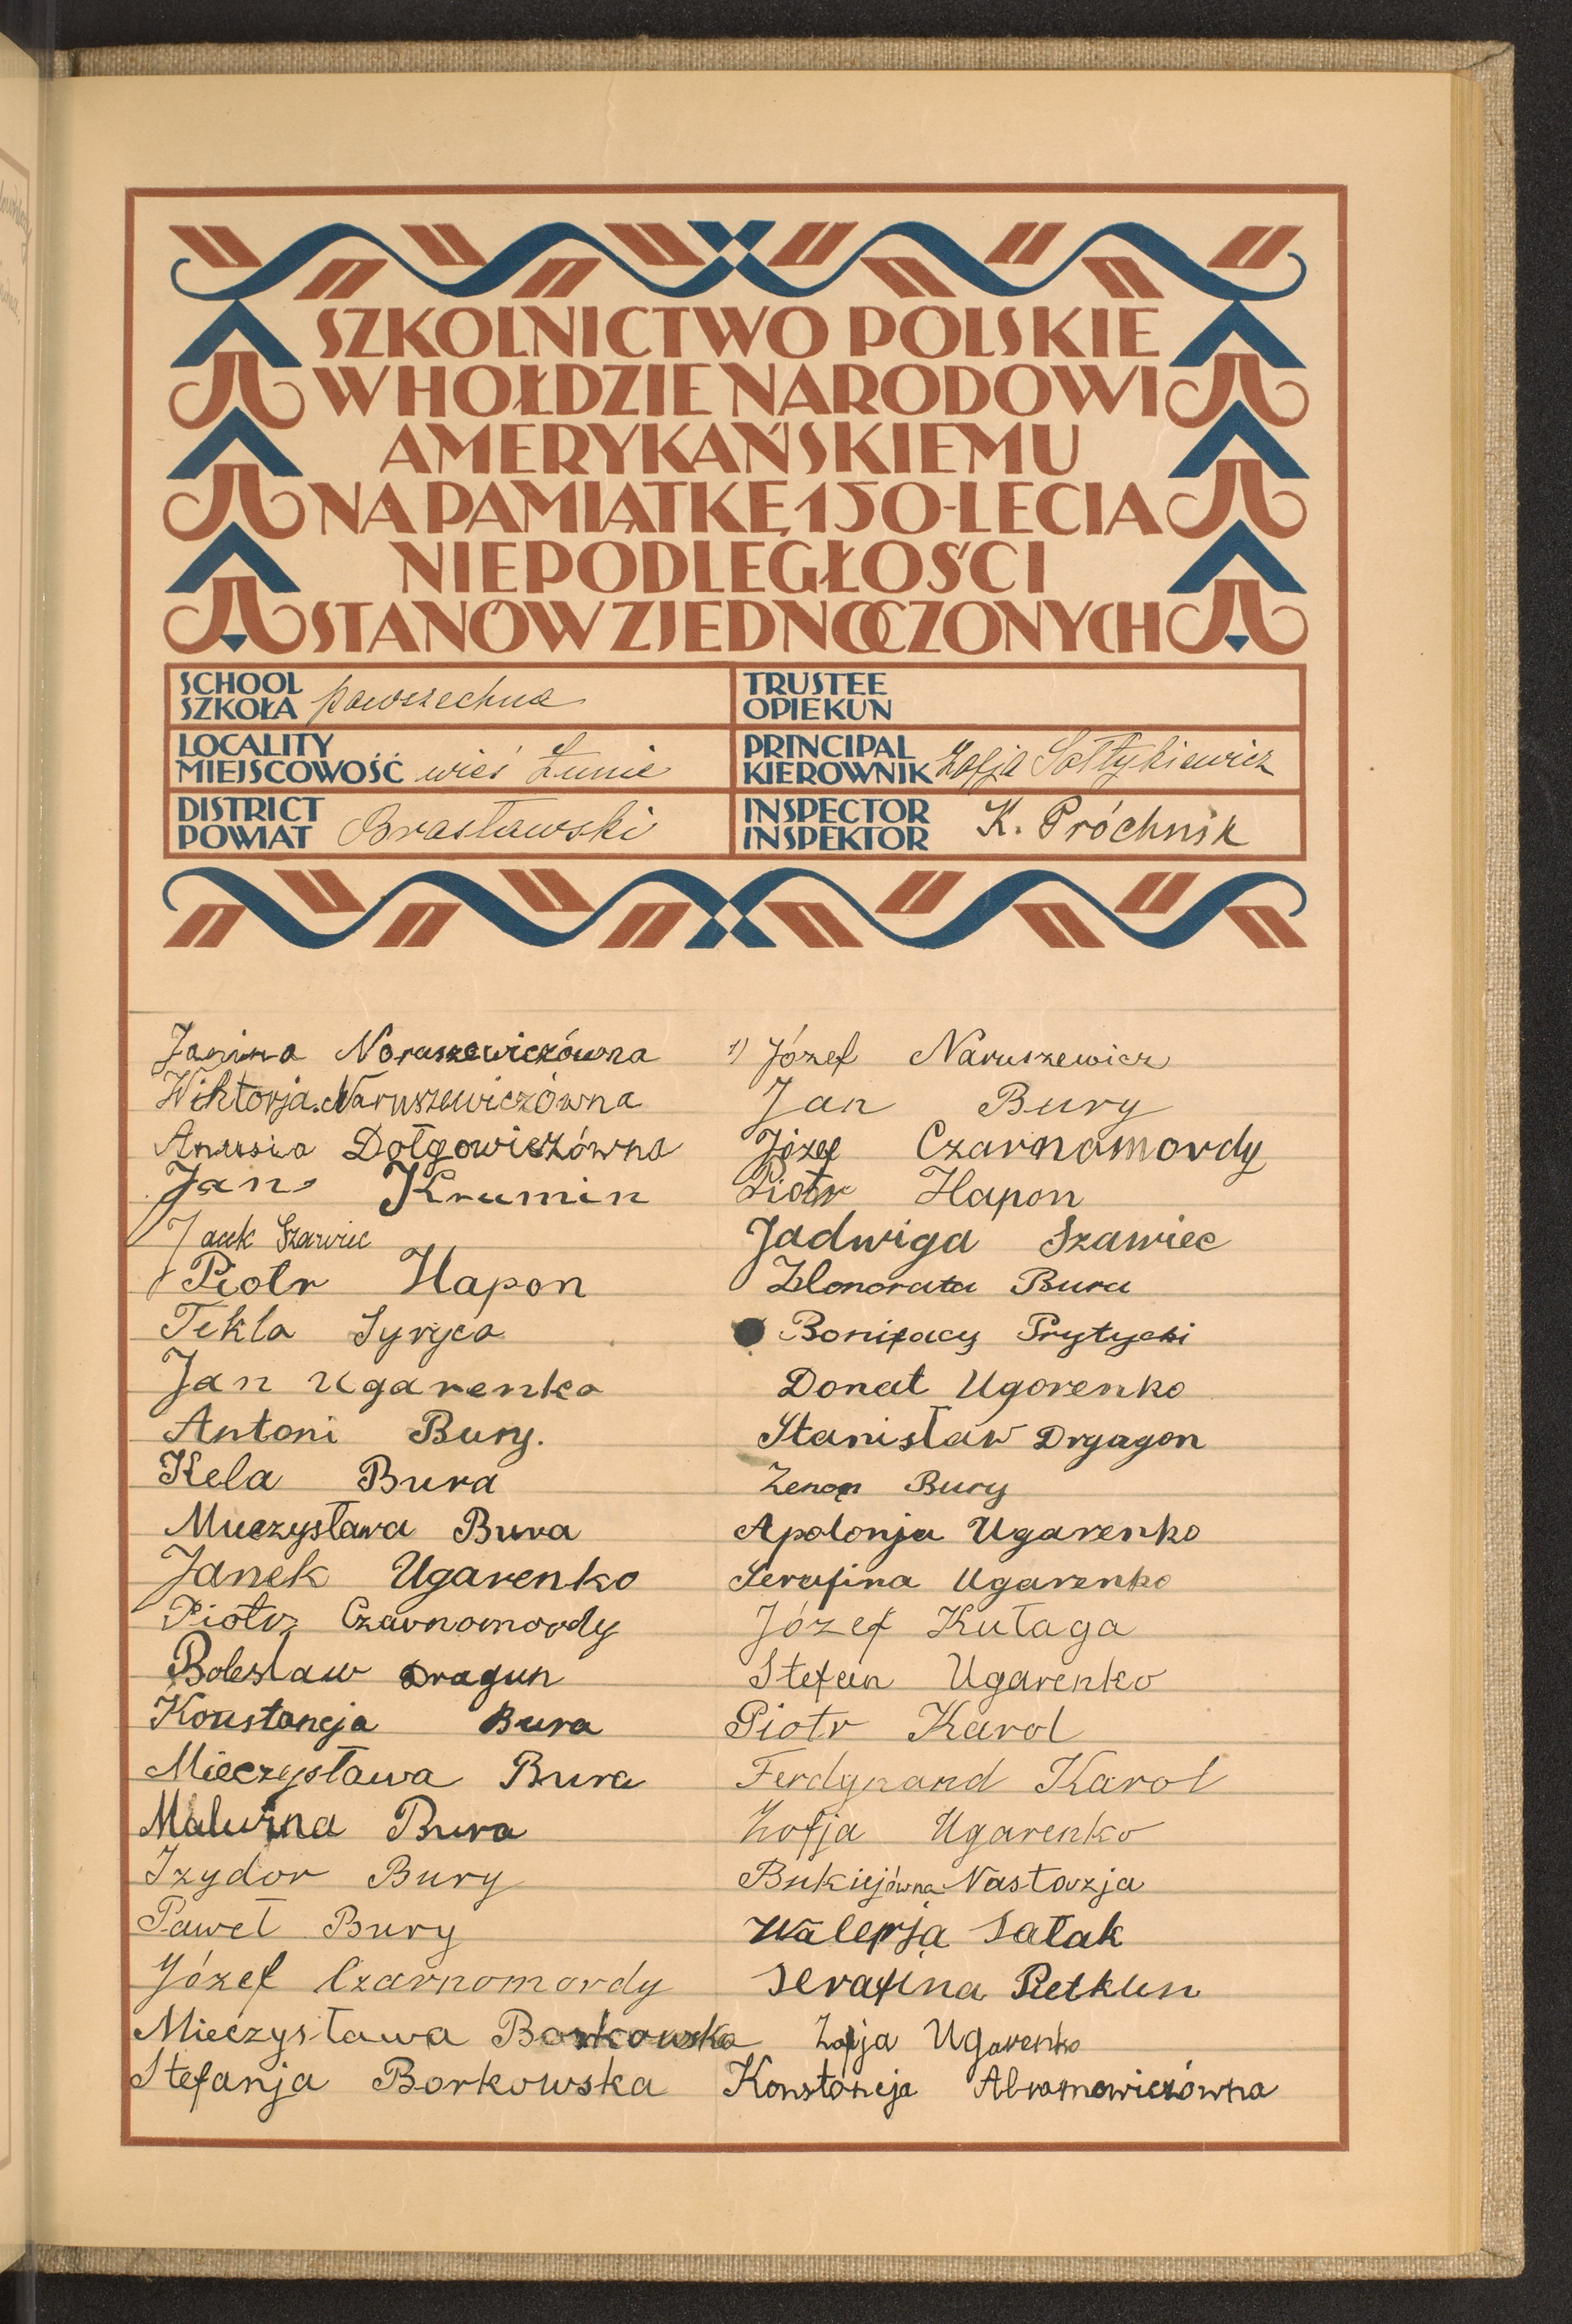 SZKOLNICTWO POLSKIE
W HOŁDZIE NARODOWI
AMERYKAŃSKIEMU
NA PAMIĄTKĘ 150-LECIA
NIEPODLEGŁOŚCI
STANÓW ZJEDNOCZONYCH
SCHOOL
SZKOŁA powszechna
TRUSTEE
OPIEKUN
LOCALITY
MIEJSCOWOŚĆ wieś Łunie
PRINCIPAL
KIEROWNIK Zofja Sołtykiewicz
DISTRICT
POWIAT Brasławski
INSPECTOR
INSPEKTOR K. Próchnik
Janina Noruszewiczówna
Wiktorja Naruszewiczówna
Anusia Dołgowiczówna
Jan Krumin
Jacek Szawiec
Piotr Hapon
Tekla Syryca
Jan Ugarenko
Antoni Bury.
Kela Bura
Mieczysława Bura
Janek Ugarenko
Piotr Czarnomordy
Bolesław Dragun
Konstancja Bura
Mieczysława Bura
Malwina Bura
Izydor Bury
Paweł Bury
Józef Czarnomordy
Mieczysława Borkowska
Stefanja Borkowska
1) Józef Naruszewicz
Jan Bury
Józef Czarnomordy
Piotr Hapon
Jadwiga Szawiec
Honorata Bura
Bonifacy Prytycki
Donat Ugorenko
Stanisław Drgagon
Zenon Bury
Apolonja Ugarenko
Serafina Ugarenko
Józef Kułaga
Stefan Ugarenko
Piotr Karol
Ferdynand Karol
Zofja Ugarenko
Bukiejówna Nastazja
Walerja Sałak
Serafina Pietkun
Zofja Ugarenko
Konstancja Abramowiczówna